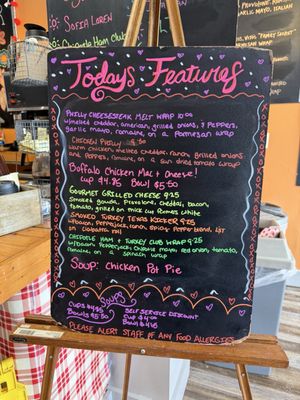 SOFIA LOREN
Ham Club
Todays Features
PHILLY CHEESESTEAK MELT WRAP 10.00
w/melted cheddar, american, grilled onions, & PEPPERS,
garlic mayo, romaine, on a Parmesan wrap
CHICKEN PHILLY
warm chicken, melted cheddar, ranch, grilled onions
and peppers, romaine, on a sun dried tomato wrap
Buffalo Chicken Mac + Cheese!
CUP $4.85 Bowl $5.50
GOURMET GRILLED CHEESE 9.25
Smoked gouda, Provolone, cheddar, bacon,
tomato, grilled on thick cut Renes white
SMOKED TURKEY TEXAS KICKER 9.25
w/Bacon, Pepperjack, ranch, Spicy Pepper Blend, L+T
on Ciabatta roll
CHIPOTLE HAM + TURKEY CLUB WRAP 9.25
w/Bacon, Pepperjack, Chipotle Mayo, red onion, tomato,
Romaine, on a spinach wrap
Soup: Chicken Pot Pie
Soups
CUPS $4.85
Bowls $5.50
SELF SERVICE DISCOUNT
CUP $4.00
Bowl $4.95
PLEASE ALERT STAFF IF ANY FOOD ALLERGIES